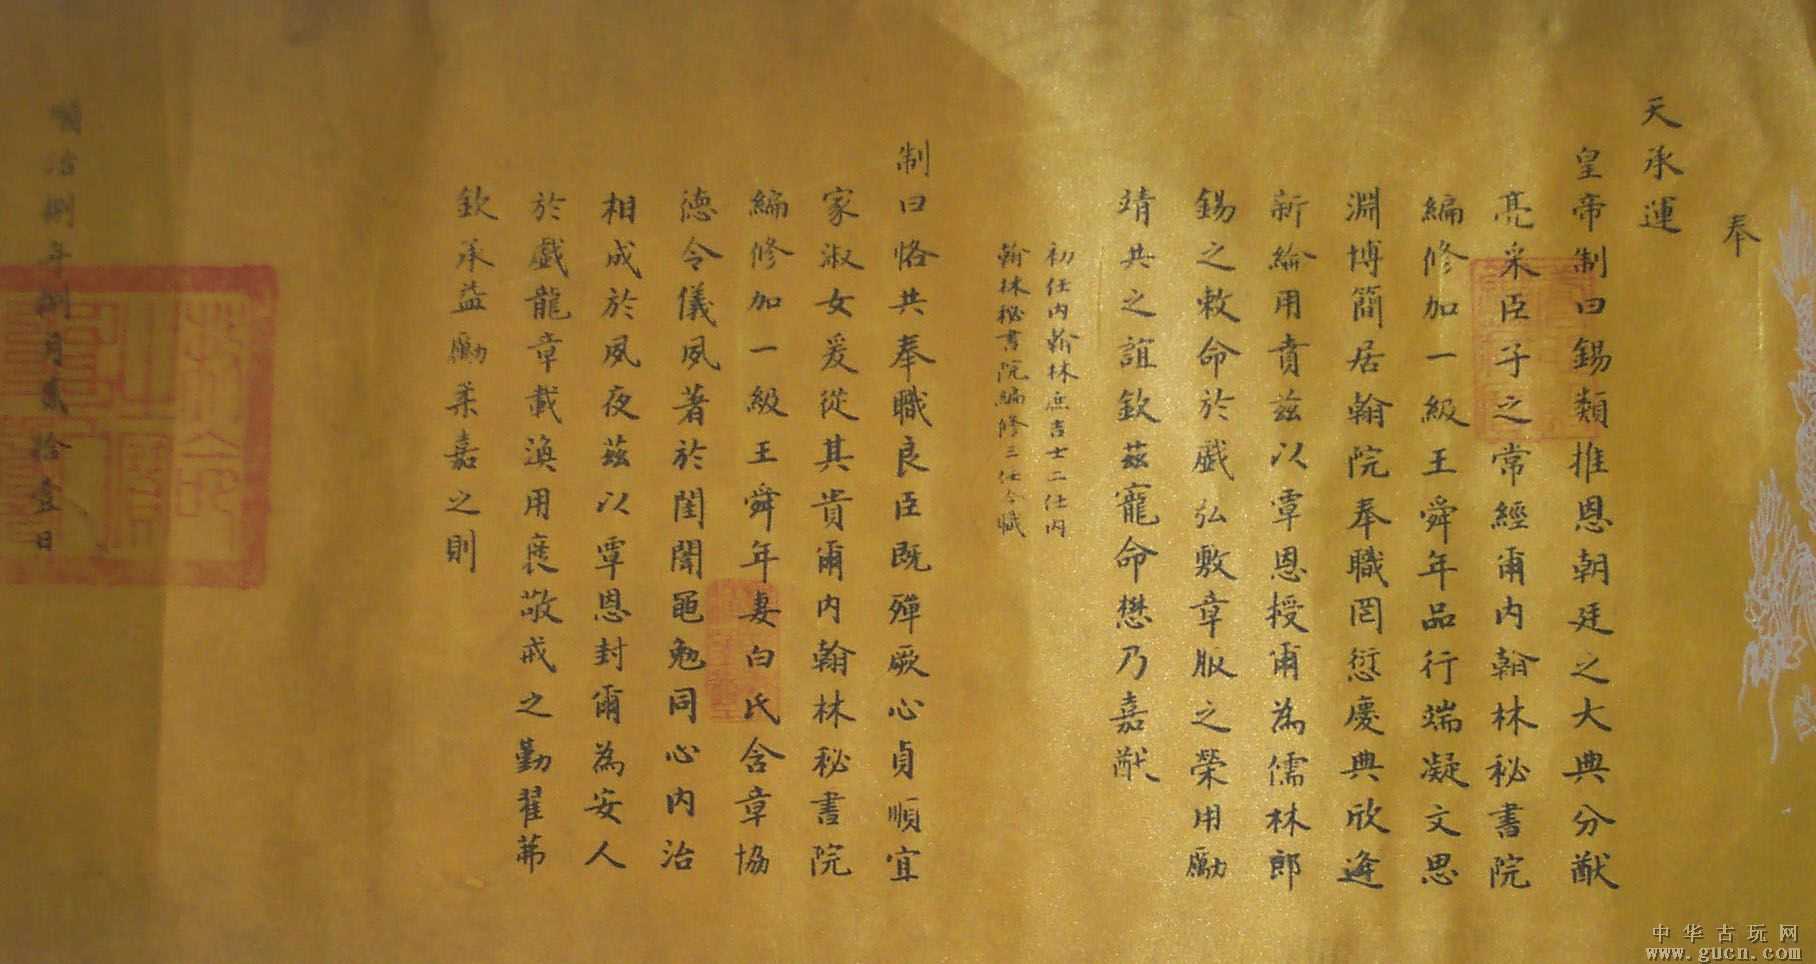 奉
天承運
皇帝制曰錫類推恩朝廷之大典分猷
亮采臣子之常經爾內翰林秘書院
編修加一級王舜年品行端凝文思
淵博簡居翰院奉職罔愆慶典欣逢
新綸用賁茲以覃恩授爾為儒林郎
錫之敕命於戲弘敷章服之榮用勵
靖共之誼欽茲寵命懋乃嘉猷
初任內翰林庶吉士二任內
翰林秘書院編修三任今職
制曰恪共奉職良臣既殫厥心貞順宜
家淑女爰從其貴爾內翰林秘書院
編修加一級王舜年妻白氏含章協
德令儀夙著於閨闈黽勉同心內治
相成於夙夜茲以覃恩封爾為安人
於戲龍章載渙用褒敬戒之勤翟茀
欽承益勵柔嘉之則
順治捌年捌月貳拾壹日
中华古玩网
www.gucn.com